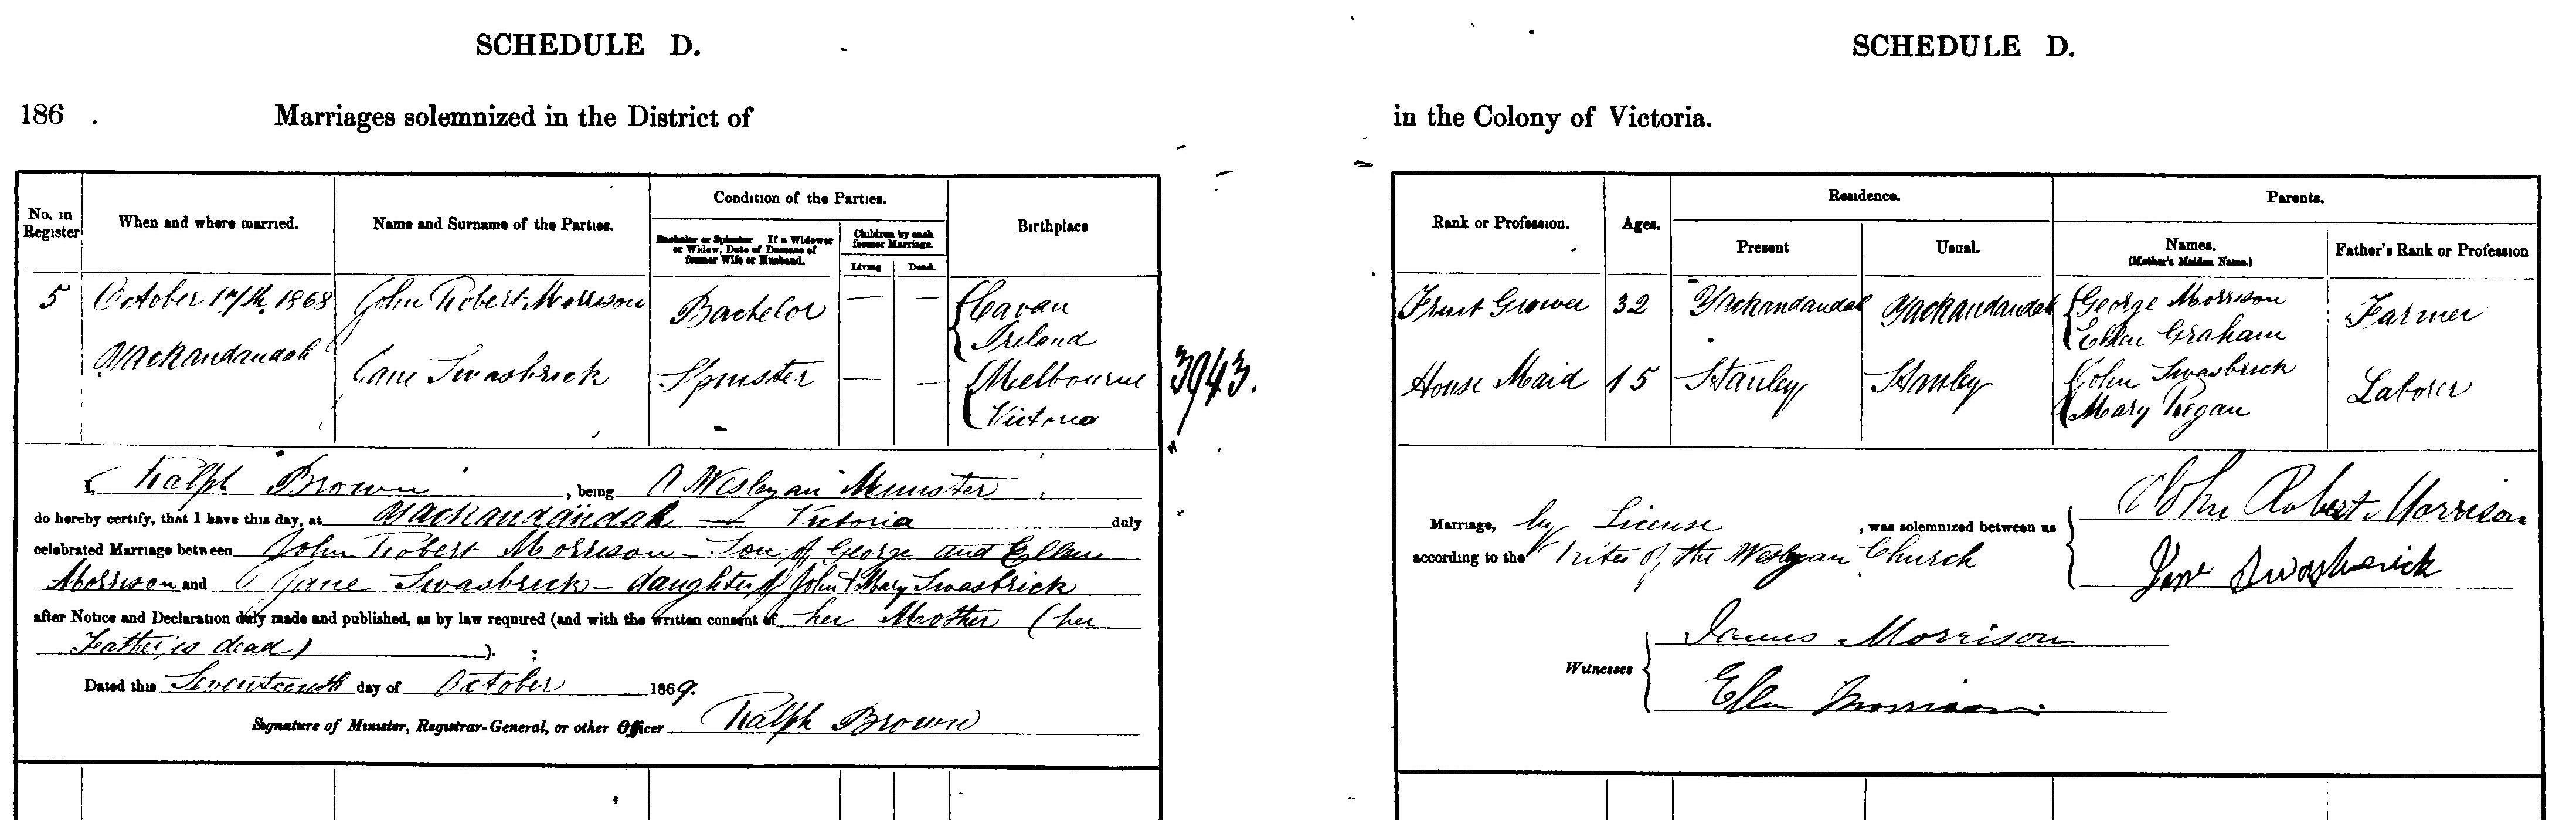 SCHEDULE D.
186 . Marriages solemnized in the District of
No. in Register
When and where married.
Name and Surname of the Parties.
Condition of the Parties.
Bachelor or Spinster If a Widower or Widow, Date of Decease of former Wife or Husband.
Children by each former Marriage.
Living
Dead.
Birthplace
5 October 17/th. 1868 John Robert Morrison Bachelor — — Cavan
Ireland
Yackandandah
Jane Swasbrick Spinster — — Melbourne
Victoria
3943.
I, Ralph Brown, being A Wesleyan Minister
do hereby certify, that I have this day, at Yackandandah — Victoria duly
celebrated Marriage between John Robert Morrison – Son of George and Ellen
Morrison and Jane Swasbrick – daughter of John & Mary Swasbrick
after Notice and Declaration duly made and published, as by law required (and with the written consent of her Mother (her
Father is dead) ).
Dated this Seventeenth day of October 1869.
Signature of Minister, Registrar-General, or other Officer Ralph Brown
SCHEDULE D.
in the Colony of Victoria.
Rank or Profession.
Ages.
Residence.
Present
Usual.
Parents.
Names.
(Mother's Maiden Name.)
Father's Rank or Profession
Fruit Grower 32 Yackandandah Yackandandah George Morrison Farmer
Ellen Graham
House Maid 15 Stanley Stanley John Swasbrick Laborer
Mary Regan
Marriage, by License, was solemnized between us
according to the Rites of the Wesleyan Church
John Robert Morrison
Jane Swasbrick
Witnesses
James Morrison
Ellen Morrison